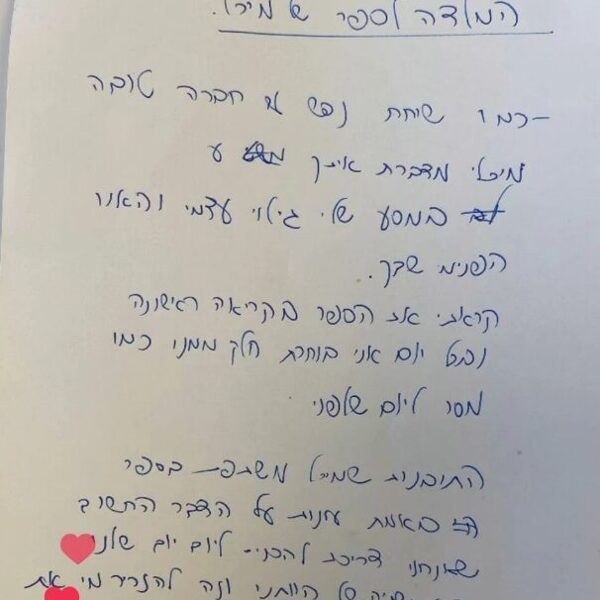 המלצה לספר של מיכל.
-כמו שיחת נפש עם חברה טובה
מיכלי מדברת איתך
במסע של גילוי עצמי והאור
הפנימי שבך.
קראתי את הספר בקריאה ראשונה
ובכל יום אני בוחרת חלק ממנו כמו
מסר ליום שלפני
התובנות שמיכל משתפת בספר
באמת עונות על הדבר החשוב
שאנחנו צריכות להכניס ליום יום שלנו
של הווייתי ולהגדיר מי את